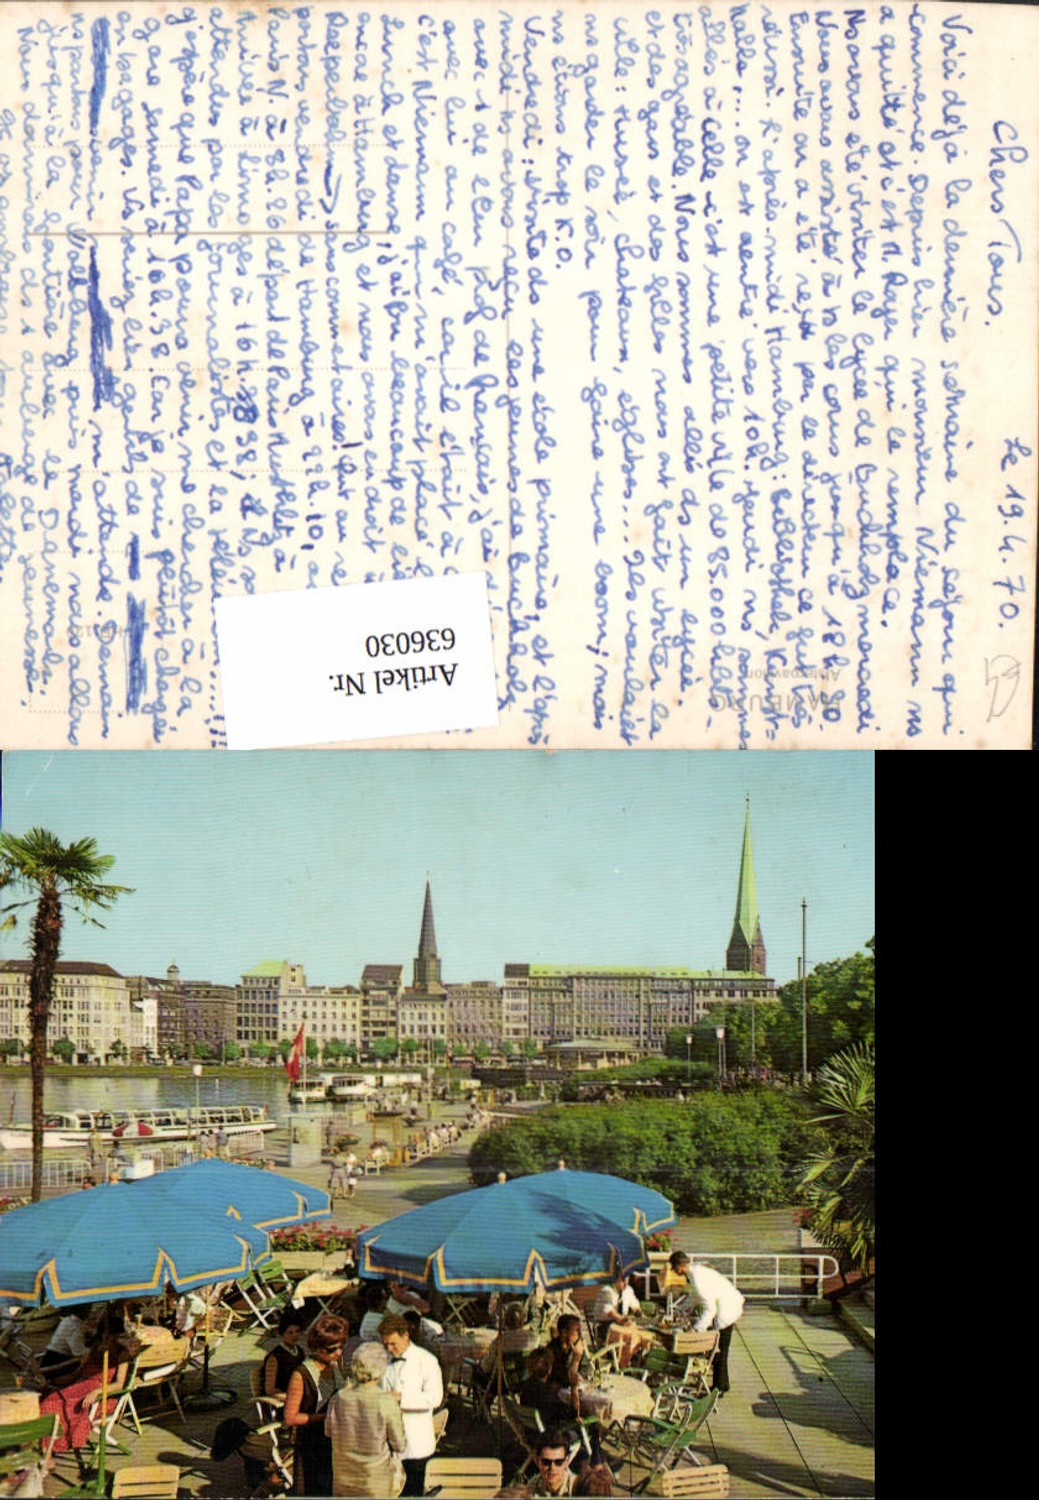 Chers Tous.
Le 19.4.70.
Voici déjà la dernière semaine du séjour qui
commence. Depuis hier monsieur Niemann ns
a quitté et c'est M. Rayer qui le remplace.
Ns avons été visiter le lycée de Buchholz mercredi
Nous avons assisté à ts les cours jusqu'à 13h 20
Ensuite on a été reçu par le directeur ce fut très
réussi. L'après-midi Hambourg: bibliothek, Kunst=
halle,... on est rentré vers 10h. Jeudi ns sommes
allés à Celle c'est une petite ville de 85.000 hbts-
très agréable. Nous sommes allés ds un lycée
et des gars et des filles nous ont fait visiter la
ville: musée, chateaux, églises... Ils voulaient
ns garder le soir pour faire une boom, mais
ns étions trop K.O.
Vendredi: visite ds une école primaire, et l'après
midi ns avons reçu les jeunes de Buchholz
avec 1 de leur prof de Français, j'ai
avec lui au café, car il était à
c'est Niemann qui m'avait placé
Lunch et danse, j'ai bu beaucoup de
encore à Hambourg et nous avons eu droit
Reeperbahn → sans commentaires!
partons vendredi de Hambourg à 22h.10,
Paris N. à 8h.26 départ de Paris Austerlitz à
Arrivée à Limoges à 16h 38,
attendus par les journalistes et la télé
j'espère que Papa pourra venir me chercher à la
gare samedi à 16h.38. Car je suis plutôt chargée
en bagages. Vs seriez bien gentils de
m'attendre. Demain
ns partons pour Vollberg puis mardi nous allons
jusqu'à la frontière avec le Danemark.
Nous dormirons ds 1 auberge de jeunesse.
Artikel Nr.
636030
HAMBURG
Alsterpavillon